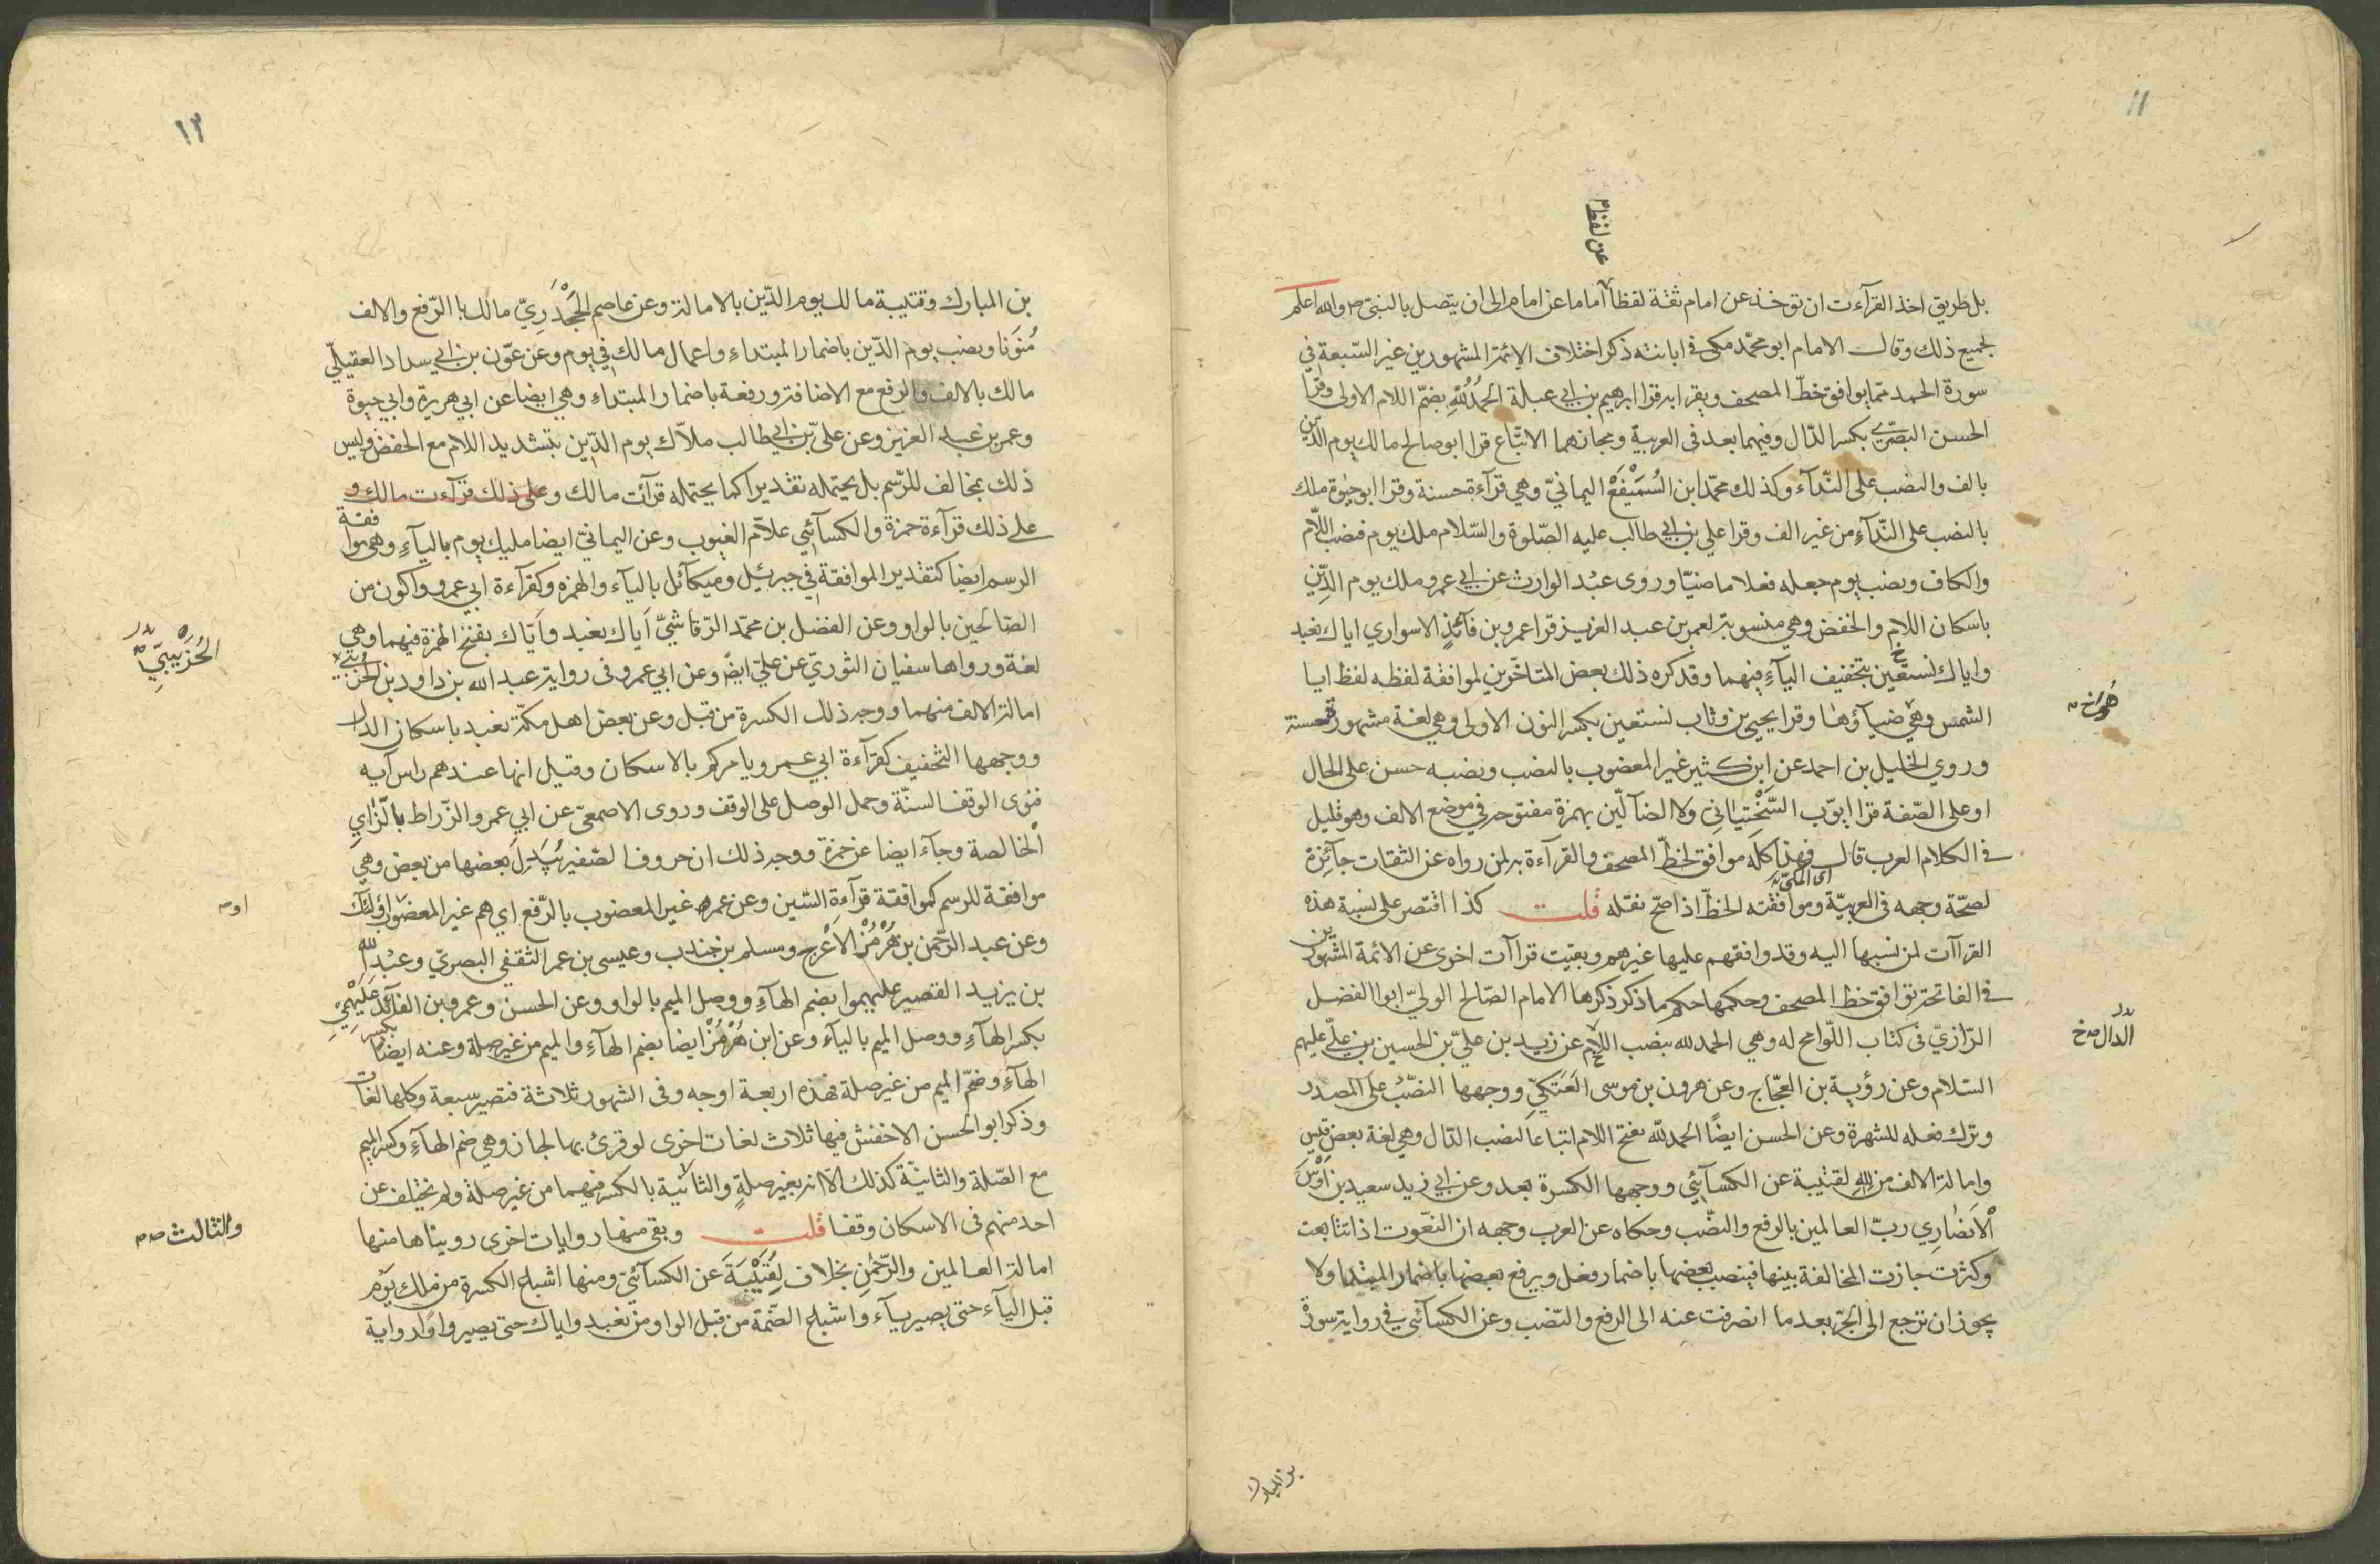 ١١
عن لفظ
بل طريق اخذ القرآءت ان توخذ عن امام ثقة لفظا اماما عن امام الى ان يتصل بالنبى ص والله اعلم
بجميع ذلك وقال الامام ابو محمّد مكى فى ابانته ذكر اختلاف الائمّة المشهورين غير السّبعة في
سورة الحمد ممّا يوافق خطّ المصحف ويقرا به قرا ابرهيم بن ابي عبلة الحمدُ لُلّهِ بضمّ اللام الاولى وقرا
الحسن البصّرى بكسر الدّال وفيهما بعد فى العربية ومجازهما الاتّباع قرا ابو صالح مالك يوم الدّين
بالف والنصب على النّدآء وكذلك محمّد ابن السُمَيْفَعُ اليمانيّ وهي قرآءة حسنة وقرا ابو حيٰوة ملك
بالنصب على النّدآءِ من غير الف وقرا علي بن ابي طالب عليه الصّلوة والسّلام ملك يوم فنصب اللّام
والكاف ونصب يوم جعله فعلا ماضيّا وروى عبْد الوارث عن ابي عمرو ملك يوم الدِّين
باسكان اللام والخفض وهي منسوبة لعمر بن عبد العزيز قرا عمرو بن فآئدٍ الاسواري اياك نعبد
واياك نستعين بتخفيف اليآءِ فيهما وقد كره ذلك بعض المتاخّرين لموافقة لفظه لفظ ايا
الشمس وهي ضيآؤها وقرا يحيى بن وثاب نستعين بكسر النون الاولى وهي لغة مشهورة حسنة
وروي الخليل بن احمد عن ابن كثير غير المغضوب بالنصب ونصبه حسن على الحال
او على الصّفة قرا ايوّب السَّخْتِيٰانِيّ ولا الضآلّين بهمزة مفتوحة في موضع الالف وهو قليل
في الكلام العرب قال فهذا كلّه موافق لخطّ المصحف والقرآءة به لمن رواه عن الثقات جآئزة
اى المكىّ
لصحّة وجهه فى العربيّة وموافقته الخطّ اذا صحّ نقله قلت كذا اقتصر على نسبة هذه
القراآت لمن نسبها اليه وقد وافقهم عليها غيرهم وبقيت قراآت اخرى عن الائمة المشهورين
في الفاتحة توافق خط المصحف وحكمها حكم ما ذكر ذكرها الامام الصّالح الوليّ ابوا الفضل
الدّال خ
الرّازيّ فى كتاب اللّوامح له وهي الحمد لله بنصب اللام عن زيد بن عليّ بن الحسين بن عليّ عليهم
السّلام وعن رؤبة بن العجّاج وعن هرون بن موسى العَتَكيّ ووجهها النصّب على المصدر
وترك فعله للشهرة وعن الحسن ايضًا الحمد لَلّه بفتح اللام اتباعا لنصب الدّال وهي لغة بعض قيس
وامالة الالف من لله لقتيبة عن الكسآئي ووجهها الكسرة بعد وعن ابي زيد سعيد بن اَوْسٍ
الْاَنصٰارِي ربّ العالمين بالرفع والنصّب وحكاه عن العرب وجهه ان النعّوت اذا تتابعت
وكثرت جازت المخالفة بينها فينصب بعضها باضمار فعل ويرفع بعضها باضمار المبتدا ولا
يجوز ان ترجع الى الجرّ بعد ما انصرفت عنه الى الرفع والنّصب وعن الكسآئي في رواية سورة
بن المبارك
١٢
بن المبارك وقتيبة مالك يوم الدّين بالامالة وعن عاصم الجَحْدَرِيّ مالك با الرّفع والالف
مُنَوّنا ونصب يوم الدّين باضمار المبتداءِ واعمال مالك في يوم وعن عوّن بن ابي سداد العقيليّ
مالك بالالف والرفع مع الاضافة ورفعه باضمار المبتداءِ وهي ايضا عن ابي هريرة وابي حيوة
وعمر بن عبد العزيز وعن علىّ بن ابي طالب ملّاك يوم الدّين بتشديد اللام مع الخفض وليس
ذلك بمخالف للرّسم بل يحتمله تقديرا كما يحتمله قرآئت مالك وعلى ذلك قرآءت مالك و
على ذلك قرآءة حمزة والكسآئي علاّم الغيوب وعن اليمانيّ ايضا مليك يوم باليآءِ وهي موافقة
الرسم ايضا كتقدير الموافقة في جبرئيل وميكآئل باليآء والهمزه وكقرآءة ابي عمرو واكون من
الصّالحين بالواو وعن الفضل بن محمّد الرّقاشيّ اَياك نعبد واَيّاك بفتح الهمزة فيهما وهي
الحُرَيْبيّ
لغة ورواها سفيان الثوريّ عن عليّ ايضً وعن ابي عمرو فى رواية عبد الله بن داود بن
امالة الالف منهما ووجه ذلك الكسرة من قبل وعن بعض اهل مكّة نعبد باسكان الدال
ووجهها التخفيف كقرآءة ابي عمرو يامركم بالاسكان وقيل انها عندهم راس آيه
فنوى الوقف السنّة وحمل الوصل على الوقف وروى الاصمعىّ عن ابي عمرو الزّراط بالّزاي
الْخالصة وجآء ايضا عن حمزة ووجه ذلك ان حروف الصّفير يُبَدلَ بعضها من بعض وهي
او
موافقة للرسم كموافقة قرآءة السّين وعن عمر غير المغضوب بالرّفع اي هم غير المغضوب
وعن عبد الرّحمن بن هُرْمُزْ الاَعْرج ومسلم بن جندب وعيسى بن عمر الثقفي البصريّ وعبْد الله
بن يزيد القصير عليهموا بضم الهآءِ ووصل الميم بالواو وعن الحسن وعمرو بن الفآئد عَلَيْهِمِيْ
بكسر الهآءِ ووصل الميم باليآء وعن ابن هُرْمُزْ ايضا بضم الهآءِ والميم من غير صلة وعنه ايضا بكسر
الهآءِ وضمّ الميم من غير صلة فهذه اربعة اوجه وفى المشهور ثلاثة فتصير سبعة وكلها لغات
وذكر ابو الحسن الاخفش فيها ثلاث لغات اخرى لو قرئ بها لجاز وهي ضم الهآءِ وكسر الميم
مع الصّلة والثانيّة كذلك الّا انه بغير صلةٍ والثانية بالكسر فيهما من غير صلة ولم يختلف عن
والثالث
احد منهم فى الاسكان وقفا قلت وبقى منها روايات اخرى رويناها منها
امالة العالمين والرّحمٰنِ بخلاف لِقُتَيْبَةَ عن الكسآئيّ ومنها اشباع الكسرة من ملك يَوْمِ
قبل اليآء حتى يصير يآء واشباع الضّمة من قبل الواو من نعبد واياك حتى يصير واوًا رواية